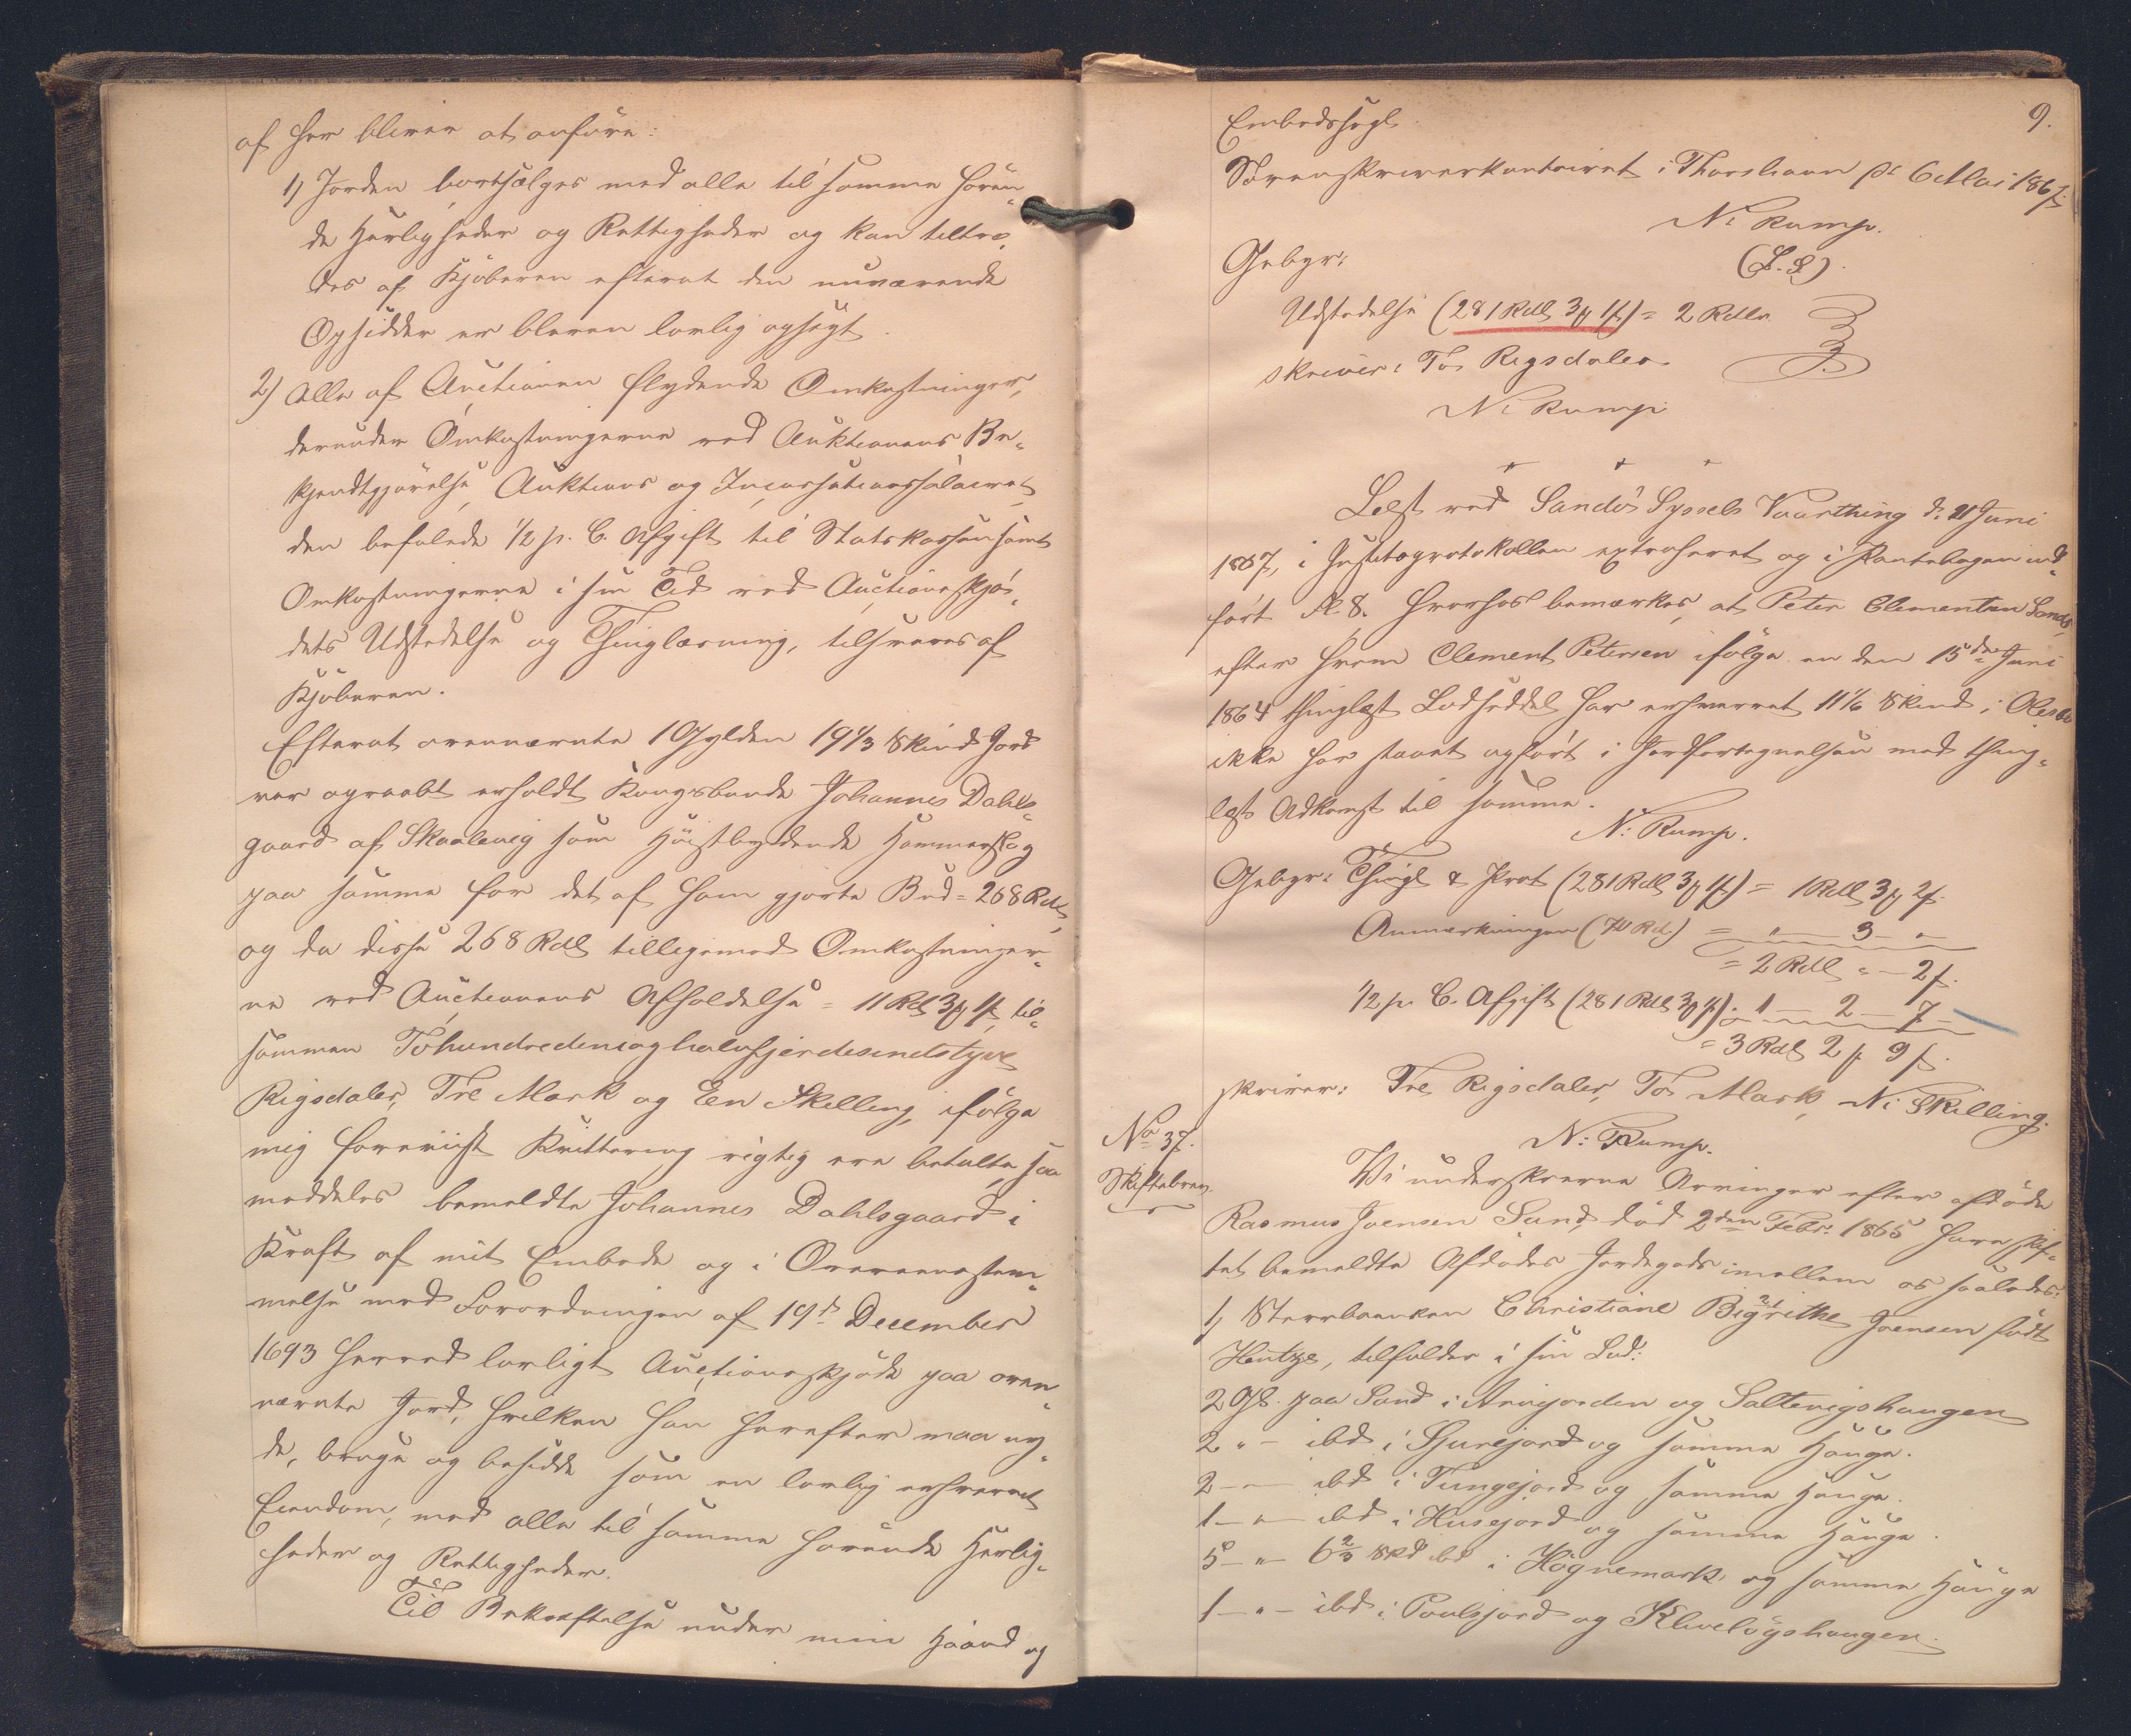 af her bliver at anføre:
1) Jorden bortsælges med alle til samme høren-
de Herligheder og Rettigheder og kan tiltræ-
des af Kjøberen efterat den nuværende
Opsidder er bleven lovlig opsagt.
2) Alle af Auctionen flydende Omkostninger,
derunder Omkostningerne ved Auktionens Be-
kjendtgjørelse, Auktions og Incassationssalairet,
den befalede 1/2 p. C. Afgift til Statskassen samt
Omkostningerne i sin Tid ved Auctionsskjø-
dets Udstedelse og Thinglæsning, tilsvares af
Kjøberen.
Efterat ovennævnte 1 Gylden 19 1/3 Skind Jord
var opraabt erholdt Kongsbonde Johannes Dahls-
gaard af Skaalevig som Høistbydende Hammerslag
paa samme for det af ham gjorte Bud = 268 Rdl,
og da disse 268 Rdl tilligemed Omkostninger-
ne ved Auctionens Afholdelse = 11 Rdl 3 ꝳ 1 ß, til-
sammen Tohundredenioghalvfjerdesindstyve
Rigsdaler, Tre Mark og Een Skilling, ifølge
mig foreviist Kvittering rigtig ere betalte, saa
meddeles bemeldte Johannes Dahlsgaard i
Kraft af mit Embede og i Overeensstem-
melse med Forordningen af 19de December
1693 herved lovligt Auctionsskjøde paa oven-
nævnte Jord, hvilken han herefter maa ny-
de, bruge og besidde som en lovlig erhvervet
Eiendom, med alle til samme hørende Herlig-
heder og Rettigheder.
Til Bekræftelse under min Haand og
9.
Embedssegl.
Sorenskriverkontoiret i Thorshavn d. 6 Mai 1867.
N: Rump.
(L. S.)
Gebyr:
Udstedelse (281 Rdl 3 ꝳ 1 ß) = 2 Rdlr
skriver: To Rigsdaler.
N: Rump
+ + +
Læst ved Sandø Syssels Vaarthing d: 21 Juni
1867, i Justitsprotokollen extraheret og i Pantebogen ind-
ført Fl. 8. Hvorhos bemærkes, at Peter Clementsen Sand,
efter hvem Clement Petersen ifølge en den 15de Juni
1864 thinglæst Lodseddel har erhvervet 11 1/6 Skind i
ikke har staaet opført i Jordfortegnelsen med thing-
læst Adkomst til samme.
N: Rump.
Gebyr: Thingl & Prot (281 Rdl 3 ꝳ 1 ß) = 1 Rdl 3 ꝳ 2 ß.
Anmærkningen (70 Rd.) = " — 3 — "
= 2 Rdl " — 2 ß.
1/2 p. C. Afgift (281 Rdl 3 ꝳ 1 ß) : 1 — 2 — 7 —
= 3 Rdl 2 ꝳ 9 ß.
skriver: Tre Rigsdaler, To Mark, Ni Skilling.
N: Rump.
No 37.
Skiftebrev.
Vi underskrevne Arvinger efter afdøde
Rasmus Joensen Sand, død 2den Febr. 1865 have skif-
tet bemeldte Afdødes Jordegods imellem os saaledes:
1) Stervboenken Christiane Bigrithe Joensen født
Hentze, tilfalder i sin Lod:
2 Gl. paa Sand i Arnejorden og Saltevigshaugen
2 " — ibd i Sjurejord og samme Hauge.
2 — " — ibd i Tungejord og samme Hauge.
1 — " — ibd i Husejord og samme Hauge.
5 — " — 6 2/3 Skd ibd i Høgnemark og samme Hauge
1 — " — ibd i Poulsjord og Kliveløgshaugen.